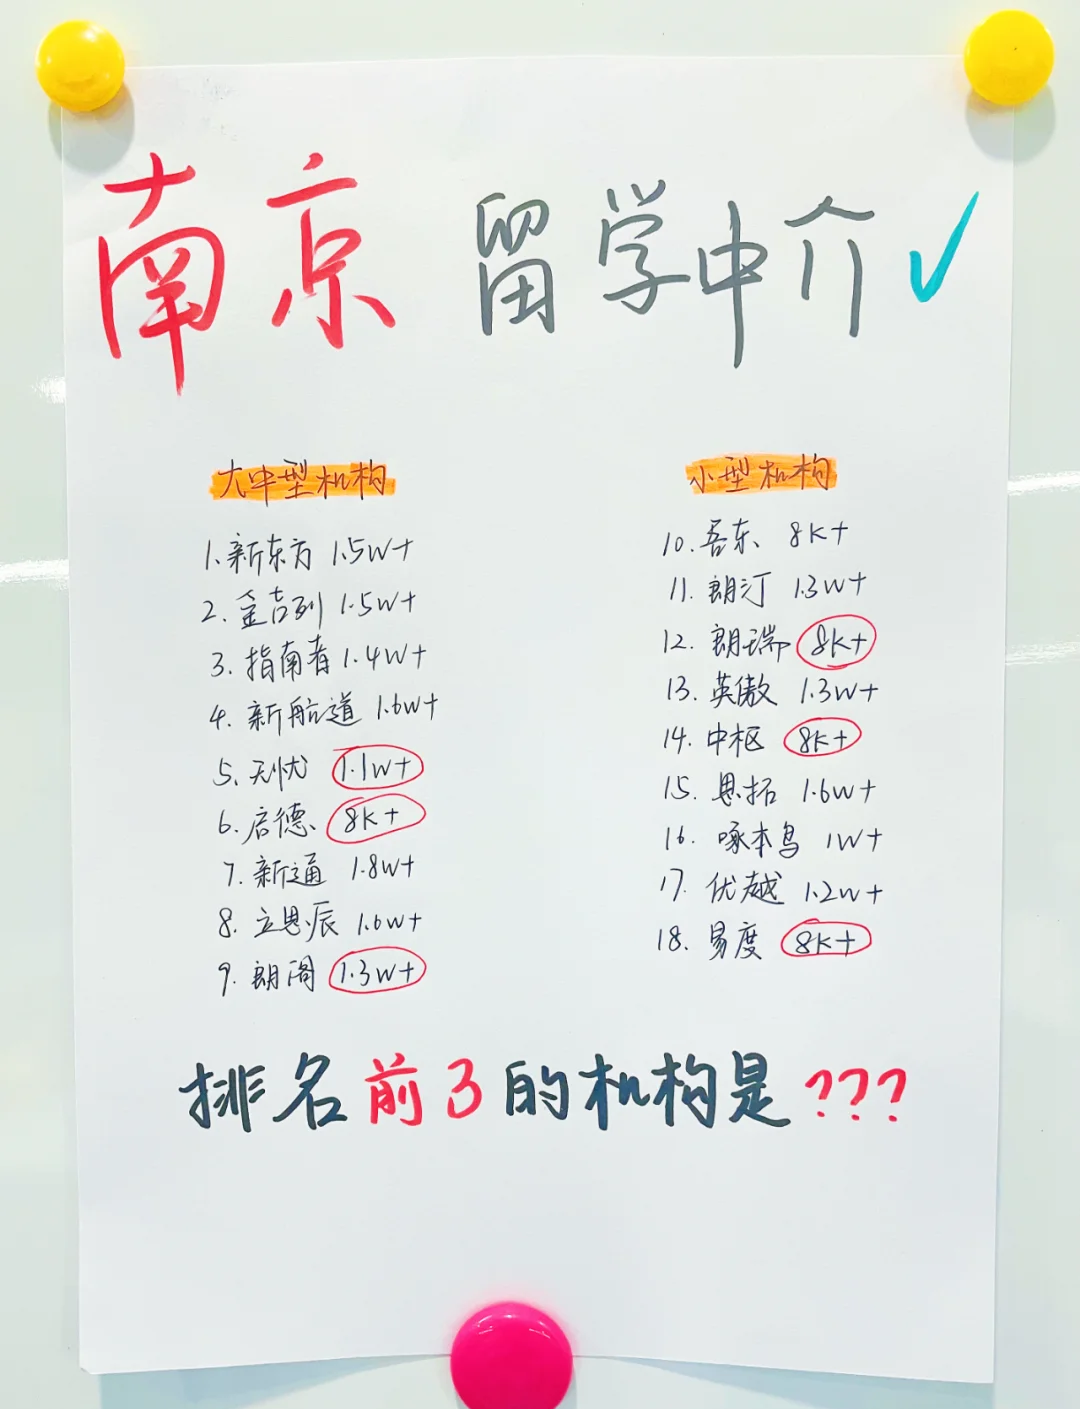 南京 留学中介✓
大中型机构
1.新东方 1.5W+
2.金吉列 1.5W+
3.指南者 1.4W+
4.新航道 1.6W+
5.无忧 1.1W+
6.启德 8K+
7.新通 1.8W+
8.立思辰 1.6W+
9.朗阁 1.3W+
小型机构
10.吾东 8K+
11.朗汀 1.3W+
12.朗瑞 8K+
13.英傲 1.3W+
14.中枢 8K+
15.思拓 1.6W+
16.啄木鸟 1W+
17.优越 1.2W+
18.易度 8K+
排名前3的机构是???